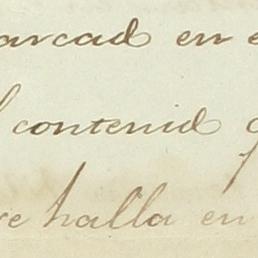 arcad en e
contenid
se halla en